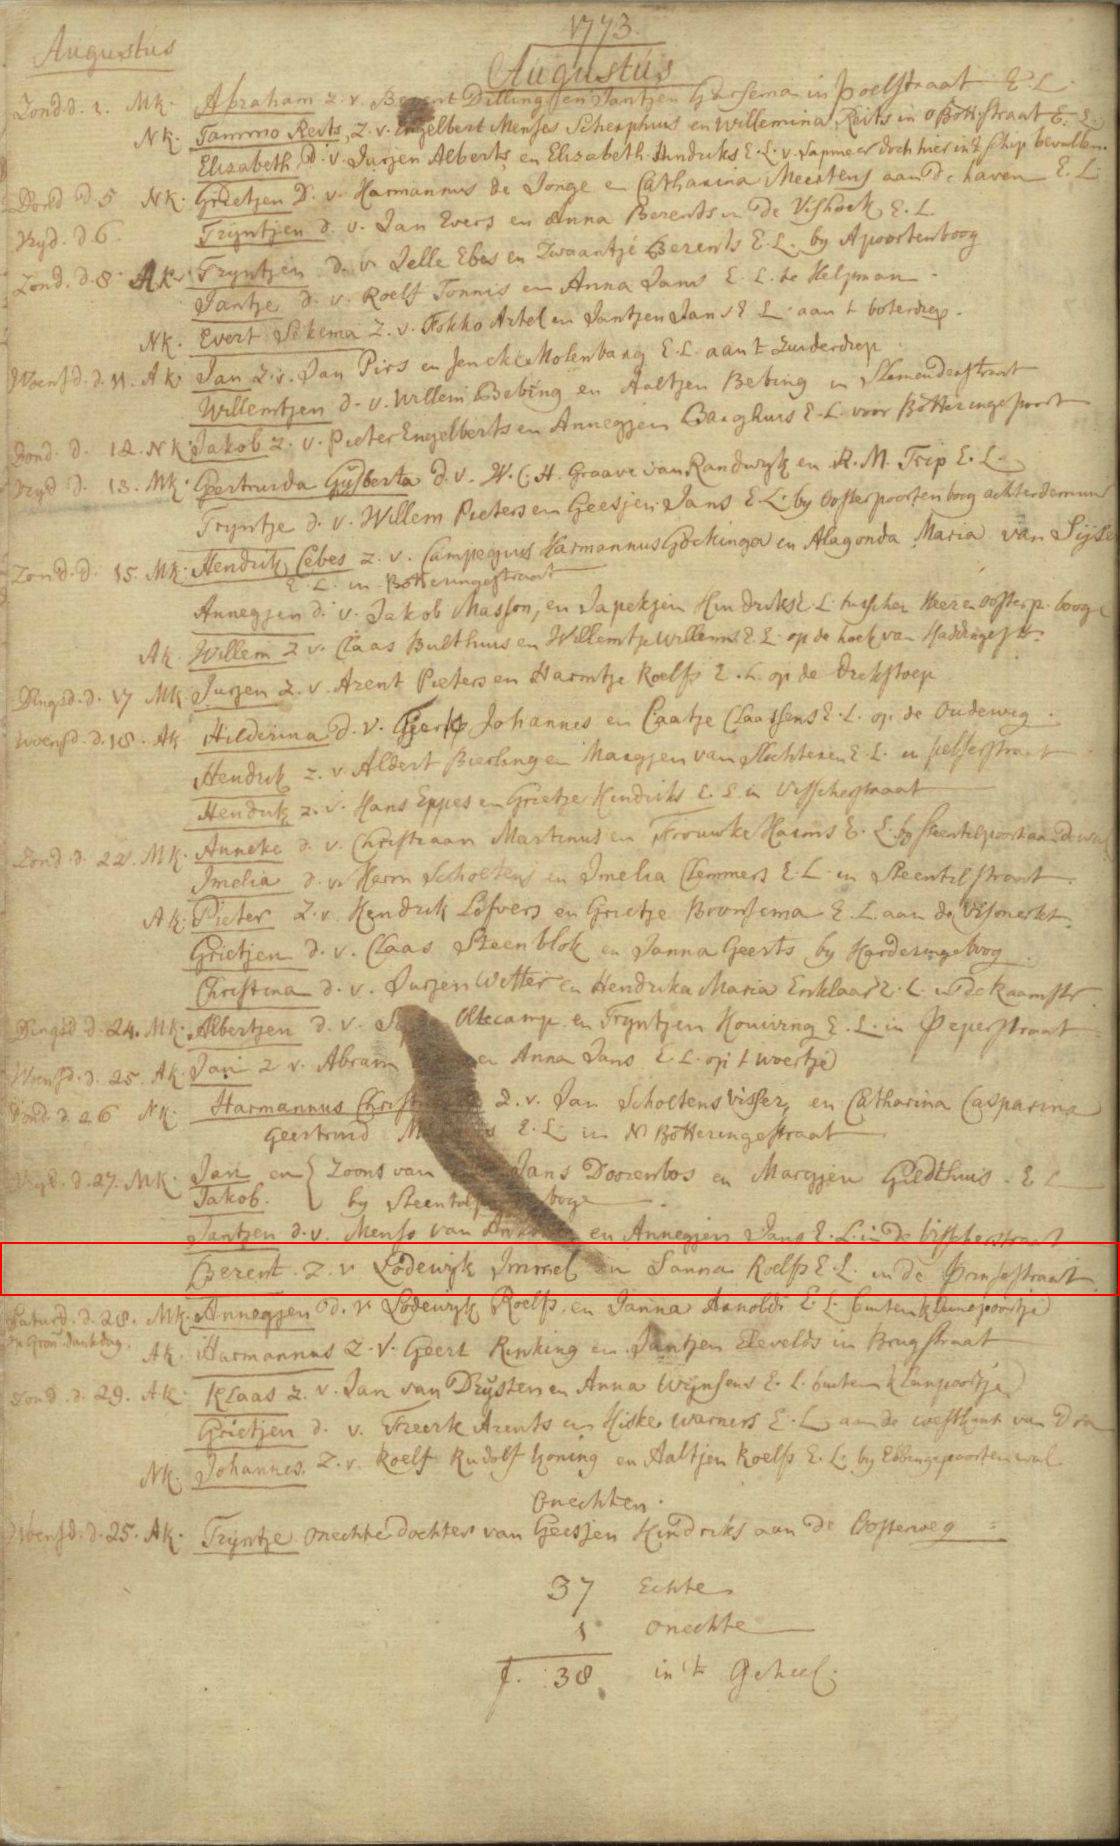 1773.
Augustus
Augustus
Zond. d. 1. Mk. Abraham z. v. Berent Dilling en Jantjen Harsema in poelstraat E. L.
Nk. Tammo Reits, z. v. Engelbert Menses Scherphuis en Willemina Reits in oBottstraat E. L.
Elizabeth d. v. Jurjen Alberts en Elizabeth Hindriks E. L. v. Sapmeer doch hier in't schip bevallen.
Dond. d 5 Nk. Grietjen D. v. Harmannus de Jonge en Catharina Meertens aan de haven E. L.
Vryd. d 6. Tryntjen d. v. Jan Evers en Anna Berents in de Vishoek E. L.
Zond. d. 8 Ak. Tryntjen d. v. Jelle Ebes en Zwaantje Berents E. L. by Apoortenboog
Jantje d. v. Roelf Tonnis en Anna Jans E. L. te Helpman
Nk. Evert Sikema z. v. Fokko Artel en Jantjen Jans E L aan t boterdiep.
Woensd. d. 11. Ak Jan z. v. Jan Pirs en Jencke Molenbang E. L. aan t Zuiderdiep
Willemtjen d. v. Willem Bebing en Aaltjen Bebing in Slemenderstraat
Dond. d. 12. Nk Jakob z. v. Pieter Engelberts en Annegjen Barghuis E. L. voor Botteringepoort
Vryd d. 13. Mk. Geertruida Gysberta d. v. W. C. H. Graave van Randwyk en R. M. Trip E. L.
Tryntje d. v. Willem Pieters en Geesjen Jans E L. by Oosterpoortenboog achter de muur
Zond. d. 15. Mk. Hendrik Cebes z. v. Campegius Harmannus Gockinga en Alagonda Maria van Sijse
E. L. in Botteringestraat
Annegjen d. v. Jakob Masson, en Japekjen Hindriks E. L. tusschen Heer en oosterp. booge
Ak. Willem z v. Claas Bulthuis en Willemtje Willems E. L. op de hoek van Haddingestr.
Dingsd. d. 17 Mk Jurjen z. v. Arent Pieters en Harmtje Roelfs E. L. op de Drekstoep
Woensd. d. 18. Ak Hilderina d. v. Tjerk Johannes en Caatje Claassens E. L. op de Oudeweg.
Hendrik z. v Aldert Bierling en Margjen van Slochteren E. L. in pelsterstraat
Hendrik z. v. Hans Eppes en Grietje Hindriks E. L. in Visscherstraat
Zond. d. 22. Mk. Anneke d. v. Christiaan Martinus en Trouwke Harms E. L. by Steentilpoort aan de wal
Imelia d. v. Harm Scholtens en Imelia Clemmers E. L. in Steentilstraat.
Ak. Pieter z. v. Hendrik Lofvers en Grietje Bronsema E. L. aan de Vismerkt
Grietjen d. v. Claas Steenblok en Janna Geerts by Harderingeboog
Christina d. v. Jurjen Witter en Hendrika Maria Enklaar E. L in de Raamstr.
Dingsd d. 24. Mk. Albertjen d. v. Oltecamp en Tryntjen Houwing E. L. in Peperstraat
Woensd. d. 25 Ak. Jan z v. Abram en Anna Jans E. L. op t woertje
Dond. d. 26 Nk. Harmannus z. v. Jan Scholtens Visser, en Catharina Casparina
Geertruid E. L. in N Botteringestraat
Vryd. d. 27. Mk. Jan en } Zoons van Jans Doorenbos en Margjen Giedthuis. E L
Jakob. by booge
Jantjen d. v. Menso van en Annegjen Jans E. L. in de visscherstraat
Berent. z. v Lodewyk Immel en Sanna Roelfs E. L. in de Prinsestraat
Saturd. d. 28. Mk. Annegjen d. v. Lodewyk Roelfs en Janna Arnolds E L. buiten kleinepoortje
dankdag. Ak. Harmannus z. v. Geert Rinking en Jantjen Elevelds in Brugstraat
Zond. d. 29. Ak Klaas z. v. Jan van Drysten en Anna Wynsens E. L. buiten kleinpoortje
Grietjen d. v. Freerk Arents en Hiske Warners E. L. aan de westkant van
Nk. Johannes. z. v. Roelf Rudolf Koning en Aaltjen Roelfs E. L. by Ebbingepoorten wal
Onechten.
Woensd. d. 25. Ak. Tryntje onechte dochter van Geesjen Hindriks aan de Oosterweg
37 Echte
1 onechte
f. 38 in 't Geheel.